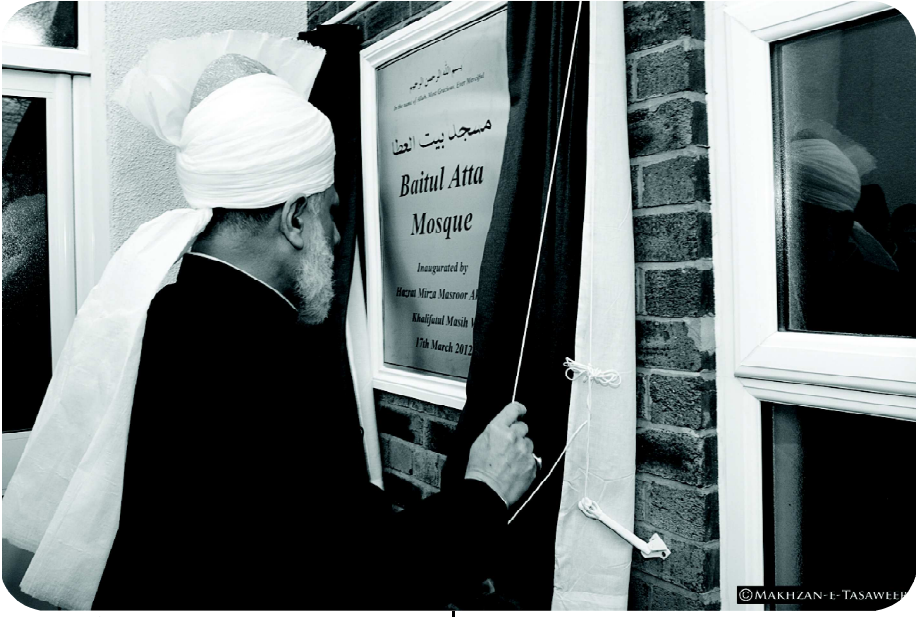 بسم الله الرحمن الرحيم
In the name of Allah, Most Gracious, Ever Merciful
مسجد بيت العطا
Baitul Atta
Mosque
Inaugurated by
Hazrat Mirza Masroor A
Khalifatul Masih
17th March 2012
©MAKHZAN-E-TASAWEER